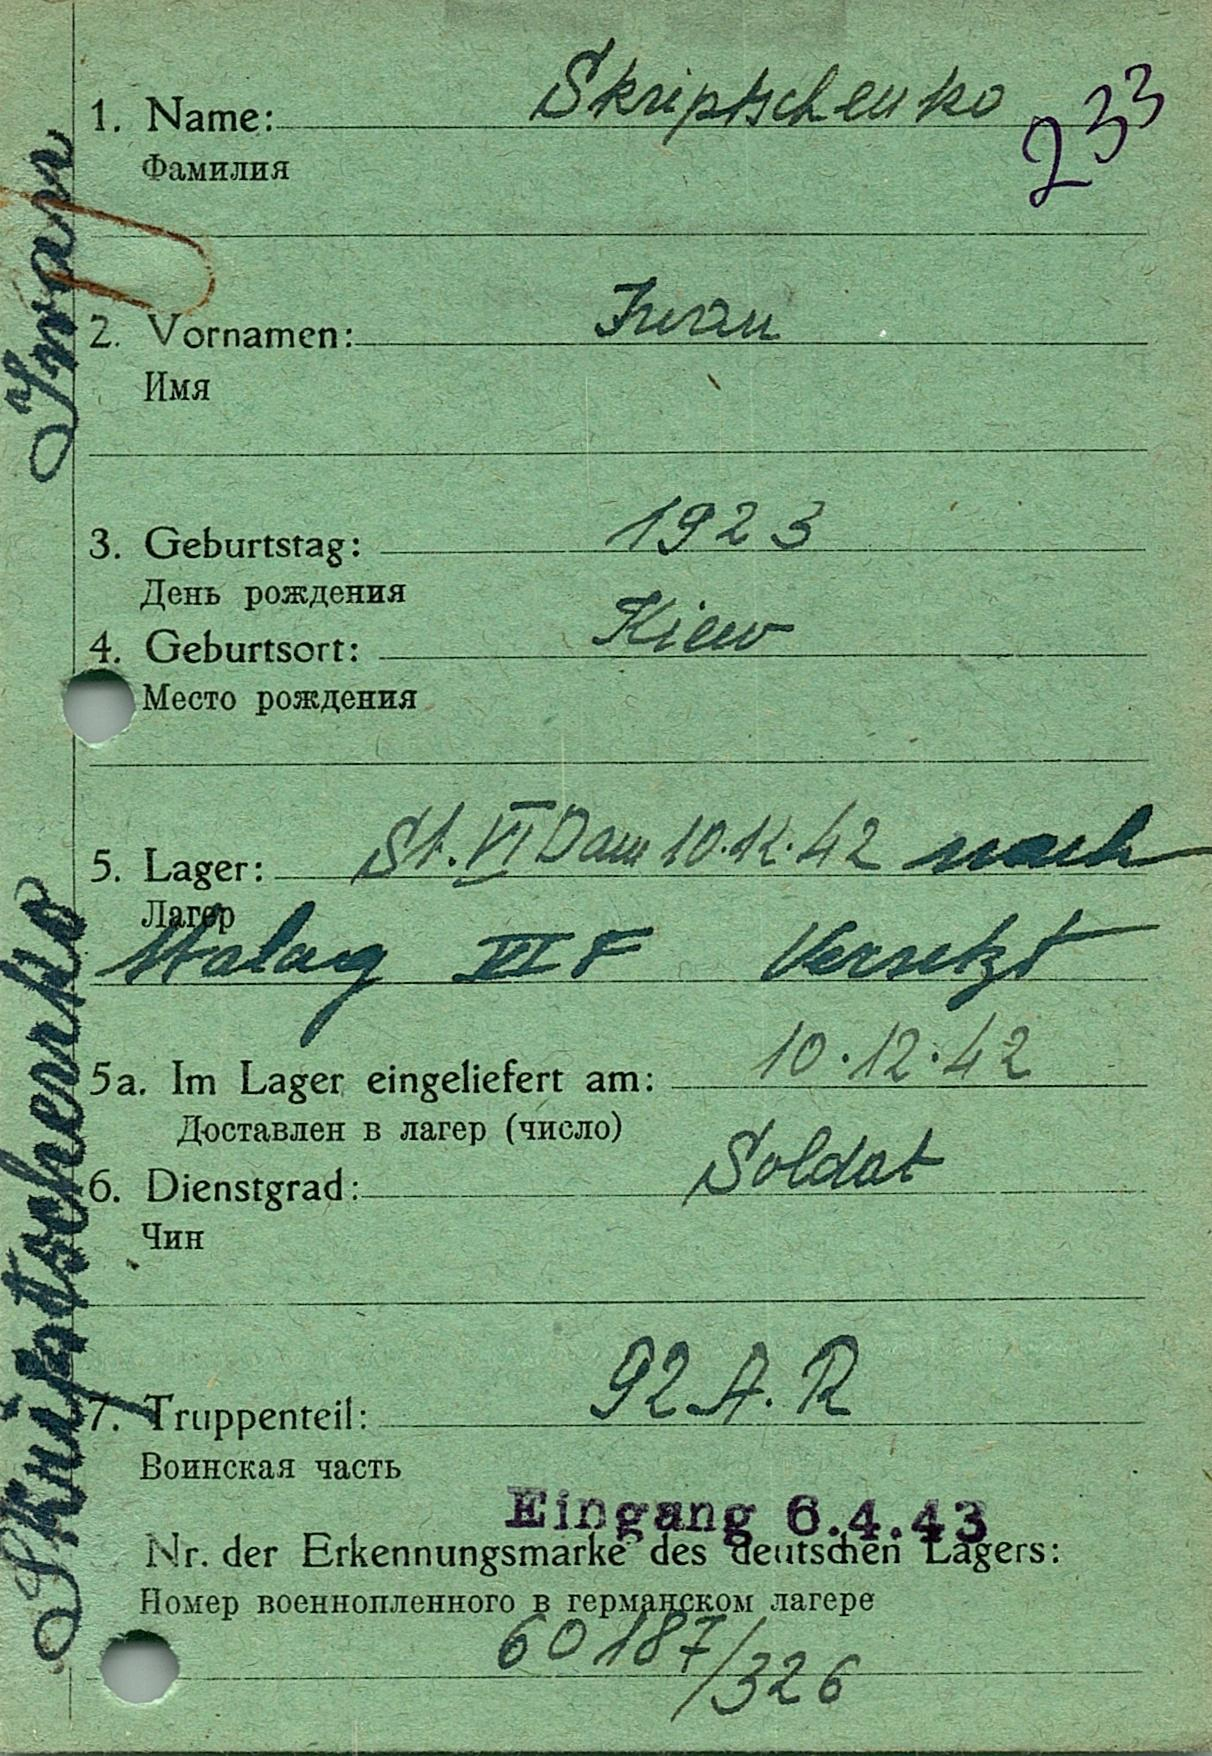 1. Name: Skriptschenko
233
Фамилия
2. Vornamen: Iwan
Имя
3. Geburtstag: 1923
День рождения
4. Geburtsort: Kiew
Место рождения
5. Lager: St. VI D am 10.12.42 nach
Лагер
Stalag VI F Versetzt
5a. Im Lager eingeliefert am: 10.12.42
Доставлен в лагер (число)
6. Dienstgrad: Soldat
Чин
7. Truppenteil: 92 A. R
Воинская часть
Eingang 6.4.43
Nr. der Erkennungsmarke des deutschen Lagers:
Номер военнопленного в германском лагере
60187/326
Skriptschenko Iwan